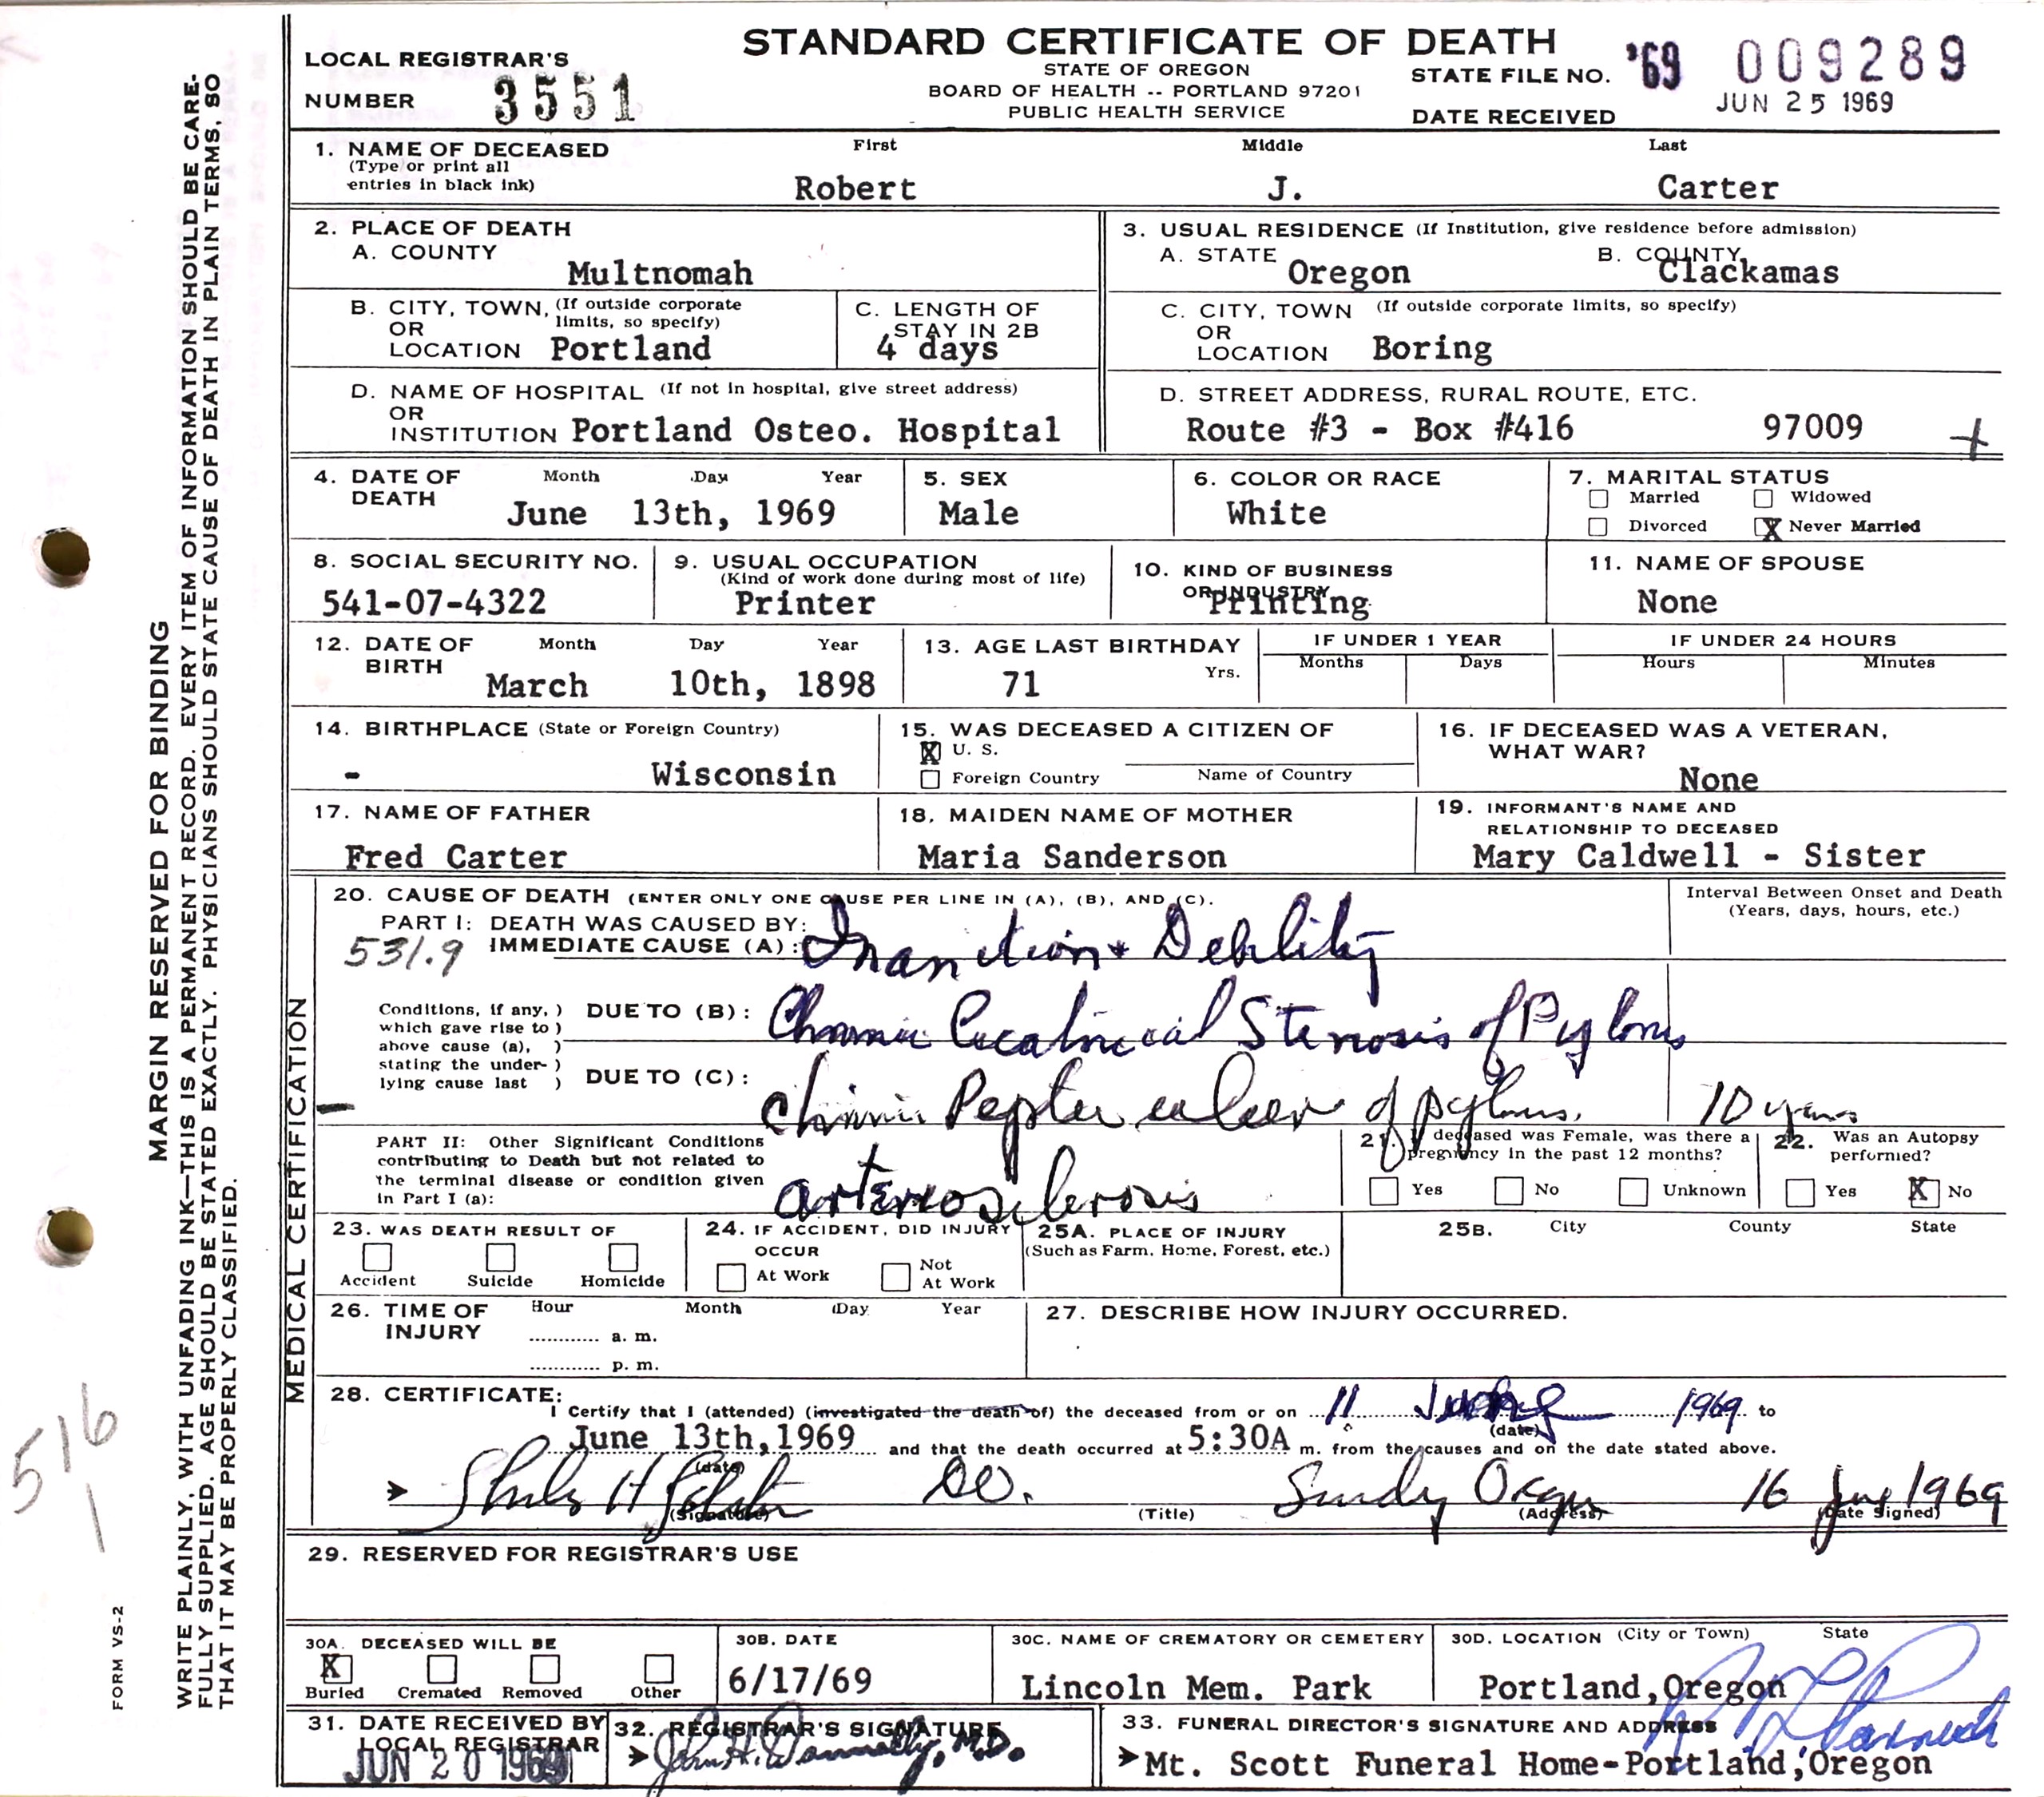 STANDARD CERTIFICATE OF DEATH
LOCAL REGISTRAR'S
NUMBER 3551
STATE OF OREGON
BOARD OF HEALTH -- PORTLAND 97201
PUBLIC HEALTH SERVICE
STATE FILE NO. '69 009289
DATE RECEIVED JUN 25 1969
1. NAME OF DECEASED First Middle Last
(Type or print all
entries in black ink) Robert J. Carter
2. PLACE OF DEATH
A. COUNTY
Multnomah
3. USUAL RESIDENCE (If Institution, give residence before admission)
A. STATE Oregon B. COUNTY Clackamas
B. CITY, TOWN, (If outside corporate
OR limits, so specify)
LOCATION Portland
C. LENGTH OF
STAY IN 2B
4 days
C. CITY, TOWN (If outside corporate limits, so specify)
OR
LOCATION Boring
D. NAME OF HOSPITAL (If not in hospital, give street address)
OR
INSTITUTION Portland Osteo. Hospital
D. STREET ADDRESS, RURAL ROUTE, ETC.
Route #3 - Box #416 97009
4. DATE OF Month Day Year
DEATH June 13th, 1969
5. SEX
Male
6. COLOR OR RACE
White
7. MARITAL STATUS
Married Widowed
Divorced X Never Married
8. SOCIAL SECURITY NO.
541-07-4322
9. USUAL OCCUPATION
(Kind of work done during most of life)
Printer
10. KIND OF BUSINESS
OR INDUSTRY
Printing
11. NAME OF SPOUSE
None
12. DATE OF Month Day Year
BIRTH March 10th, 1898
13. AGE LAST BIRTHDAY
71 Yrs.
IF UNDER 1 YEAR
Months Days
IF UNDER 24 HOURS
Hours Minutes
14. BIRTHPLACE (State or Foreign Country)
- Wisconsin
15. WAS DECEASED A CITIZEN OF
X U. S.
Foreign Country Name of Country
16. IF DECEASED WAS A VETERAN,
WHAT WAR?
None
17. NAME OF FATHER
Fred Carter
18. MAIDEN NAME OF MOTHER
Maria Sanderson
19. INFORMANT'S NAME AND
RELATIONSHIP TO DECEASED
Mary Caldwell - Sister
MEDICAL CERTIFICATION
20. CAUSE OF DEATH (ENTER ONLY ONE CAUSE PER LINE IN (A), (B), AND (C).
Interval Between Onset and Death
(Years, days, hours, etc.)
PART I: DEATH WAS CAUSED BY:
531.9 IMMEDIATE CAUSE (A): Inanition + Debility
Conditions, if any, )
which gave rise to )
above cause (a), )
stating the under- )
lying cause last )
DUE TO (B): Chronic Cicatricial Stenosis of Pylorus
DUE TO (C): Chronic Peptic ulcer of pylorus. 10 years
PART II: Other Significant Conditions
contributing to Death but not related to
the terminal disease or condition given
in Part I (a): arteriosclerosis
21. If deceased was Female, was there a
pregnancy in the past 12 months?
Yes No Unknown
22. Was an Autopsy
performed?
Yes X No
23. WAS DEATH RESULT OF
Accident Suicide Homicide
24. IF ACCIDENT, DID INJURY
OCCUR
At Work Not At Work
25A. PLACE OF INJURY
(Such as Farm, Home, Forest, etc.)
25B. City County State
26. TIME OF Hour Month Day Year
INJURY a. m.
p. m.
27. DESCRIBE HOW INJURY OCCURRED.
28. CERTIFICATE:
I Certify that I (attended) (investigated the death of) the deceased from or on 11 June 1969 to
(date)
June 13th, 1969 and that the death occurred at 5:30A m. from the causes and on the date stated above.
(date)
H D.O. Sandy Oregon 16 June 1969
(Signature) (Title) (Address) (Date Signed)
29. RESERVED FOR REGISTRAR'S USE
30A. DECEASED WILL BE
X
Buried Cremated Removed Other
30B. DATE
6/17/69
30C. NAME OF CREMATORY OR CEMETERY
Lincoln Mem. Park
30D. LOCATION (City or Town) State
Portland, Oregon
31. DATE RECEIVED BY
LOCAL REGISTRAR
JUN 20 1969
32. REGISTRAR'S SIGNATURE
John H. Donnelly, M.D.
33. FUNERAL DIRECTOR'S SIGNATURE AND ADDRESS
Mt. Scott Funeral Home-Portland, Oregon
MARGIN RESERVED FOR BINDING
WRITE PLAINLY, WITH UNFADING INK—THIS IS A PERMANENT RECORD. EVERY ITEM OF INFORMATION SHOULD BE CARE-
FULLY SUPPLIED. AGE SHOULD BE STATED EXACTLY. PHYSICIANS SHOULD STATE CAUSE OF DEATH IN PLAIN TERMS, SO
THAT IT MAY BE PROPERLY CLASSIFIED.
FORM VS-2
516
1